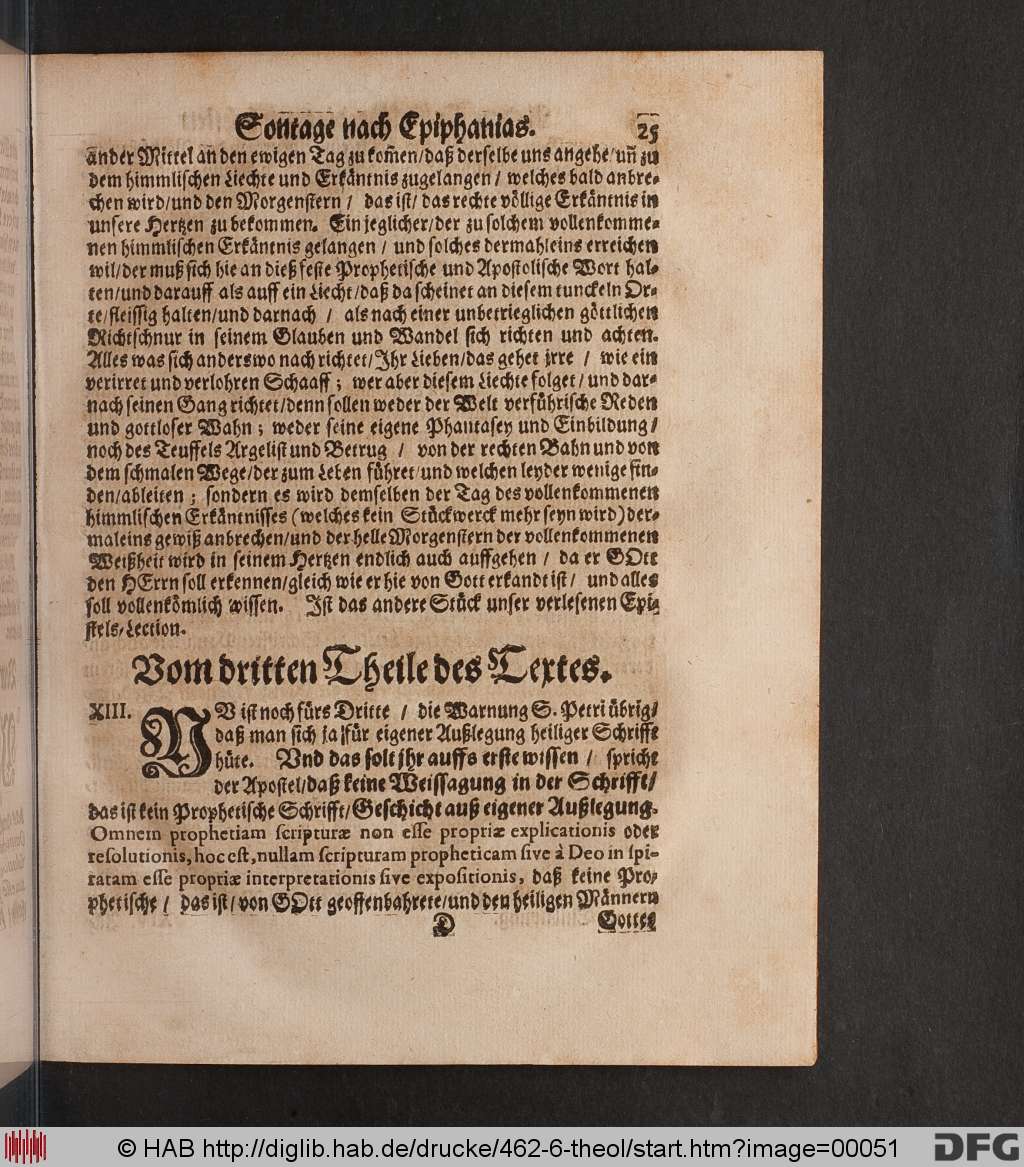 Sontage nach Epiphanias. 25
ander Mittel an den ewigen Tag zu kom̃en/daß derselbe uns angehe/uñ zu
dem himmlischen Liechte und Erkäntnis zugelangen / welches bald anbre-
chen wird/und den Morgenstern / das ist/ das rechte völlige Erkäntnis in
unsere Hertzen zu bekommen. Ein jeglicher/der zu solchem vollenkomme-
nen himmlischen Erkäntnis gelangen / und solches dermahleins erreichen
wil/der muß sich hie an dieß feste Prophetische und Apostolische Wort hal-
ten/und darauff als auff ein Liecht/daß da scheinet an diesem tunckeln Or-
te/fleissig halten/und darnach / als nach einer unbetrieglichen göttlichen
Richtschnur in seinem Glauben und Wandel sich richten und achten.
Alles was sich anderswo nach richtet/Ihr Lieben/das gehet irre / wie ein
verirret und verlohren Schaaff; wer aber diesem Liechte folget/ und dar-
nach seinen Gang richtet/denn sollen weder der Welt verführische Reden
und gottloser Wahn; weder seine eigene Phantasey und Einbildung/
noch des Teuffels Argelist und Betrug / von der rechten Bahn und von
dem schmalen Wege/der zum Leben führet/und welchen leyder wenige fin-
den/ableiten; sondern es wird demselben der Tag des vollenkommenen
himmlischen Erkäntnisses (welches kein Stückwerck mehr seyn wird) der-
maleins gewiß anbrechen/und der helle Morgenstern der vollenkommenen
Weißheit wird in seinem Hertzen endlich auch auffgehen / da er GOtt
den HErrn soll erkennen/gleich wie er hie von Gott erkandt ist/ und alles
soll vollenkömlich wissen. Ist das andere Stück unser verlesenen Epi-
stels-Lection.
Vom dritten Theile des Textes.
XIII. NU ist noch fürs Dritte / die Warnung S. Petri übrig/
daß man sich ja für eigener Außlegung heiliger Schrifft
hüte. Vnd das solt jhr auffs erste wissen / spricht
der Apostel/daß keine Weissagung in der Schrifft/
das ist kein Prophetische Schrifft/Geschicht auß eigener Außlegung.
Omnem prophetiam scripturæ non esse propriæ explicationis oder
resolutionis, hoc est, nullam scripturam propheticam sive à Deo inspi-
ratam esse propriæ interpretationis sive expositionis, daß keine Pro-
phetische / das ist/ von GOtt geoffenbahrete/und den heiligen Männern
D Gottes
© HAB http://diglib.hab.de/drucke/462-6-theol/start.htm?image=00051 DFG